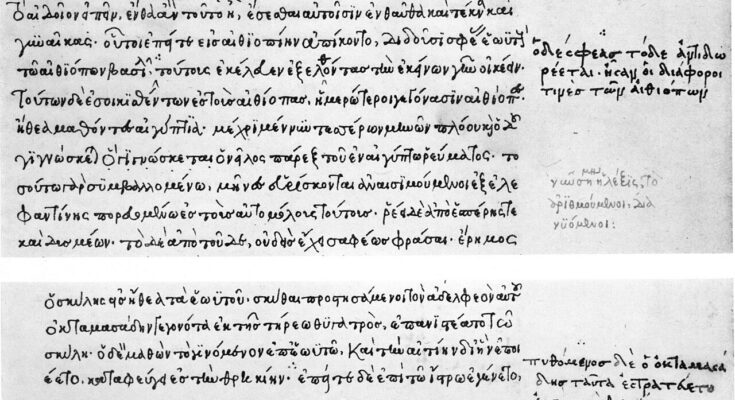 αἰδοῖον εἰπεῖν, ἔνθα ἂν τοῦτο ἦ, ἔσεσθαι αὐτοῖσιν ἐνθαῦθα καὶ τέκνα καὶ
γυναῖκας· οὗτοι ἐπήτε εἰς αἰθιοπίην ἀπίκοντο, διδοῦσι σφέ ἑωυτ
τῶ αἰθιόπων βασιλ· τούτοις ἐκέλευεν ἐξελόντας τὴν ἐκείνων γῆν οἰκέειν·
τούτων δὲ ἐσοικισθέντων ἐς τοὺς αἰθίοπας, ἡμερώτεροι γεγόνασιν αἰθίοπες
ἤθεα μαθόντες αἰγύπτια· μέχρι μέν νυν τεσσέρων μηνῶν πλόου κ ὁδοῦ
γιγνώσκεται ὁ νεῖλος πάρεξ τοῦ ἐν αἰγύπτω ῥεύματος· το
σούτω γὰρ συμβαλλομένω, μῆνες εὑρίσκονται ἀναισιμούμενοι ἐξ ἐλε
φαντίνης πορευομένω ἐς τοὺς αὐτομόλους τούτους· ῥέει δὲ ἀπὸ ἑσπέρης τε
καὶ δυσμέων· τὸ δὲ ἀπὸ τοῦδε, οὐδεὶς ἔχει σαφέως φράσαι· ἔρημος
ὁ δὲ σφεας τῶδε ἀντιδω
ρέεται· ἦσαν οἱ διάφοροι
τινες τῶν αἰθιόπων
ἡ λέξις, τὸ
ἀριθμούμενοι, δια
νυόμενοι:
ὁ σκύλης ἐς ἤθεα τὰ ἑωυτοῦ· σκύθαι προστησάμενοι τὸν ἀδελφεὸν αὐτοῦ
ὀκταμασάδην γεγονότα ἐκ τῆς τήρεω θυγατρὸς, ἐπανιστέατο τῶ
σκύλη· ὁ δὲ μαθὼν τὸ γινόμενον ἐπ' ἑωυτῶ, καὶ τὴν αἰτίην δι' ἣν ἐποι
έετο, καταφεύγει ἐς τὴν θρηικίην· ἐπήτε δὲ ἐπὶ τῶ ἴστρω ἐγένετο,
πυθόμενος δὲ ὁ ὀκταμασά
δης ταῦτα ἐστρατεύετο